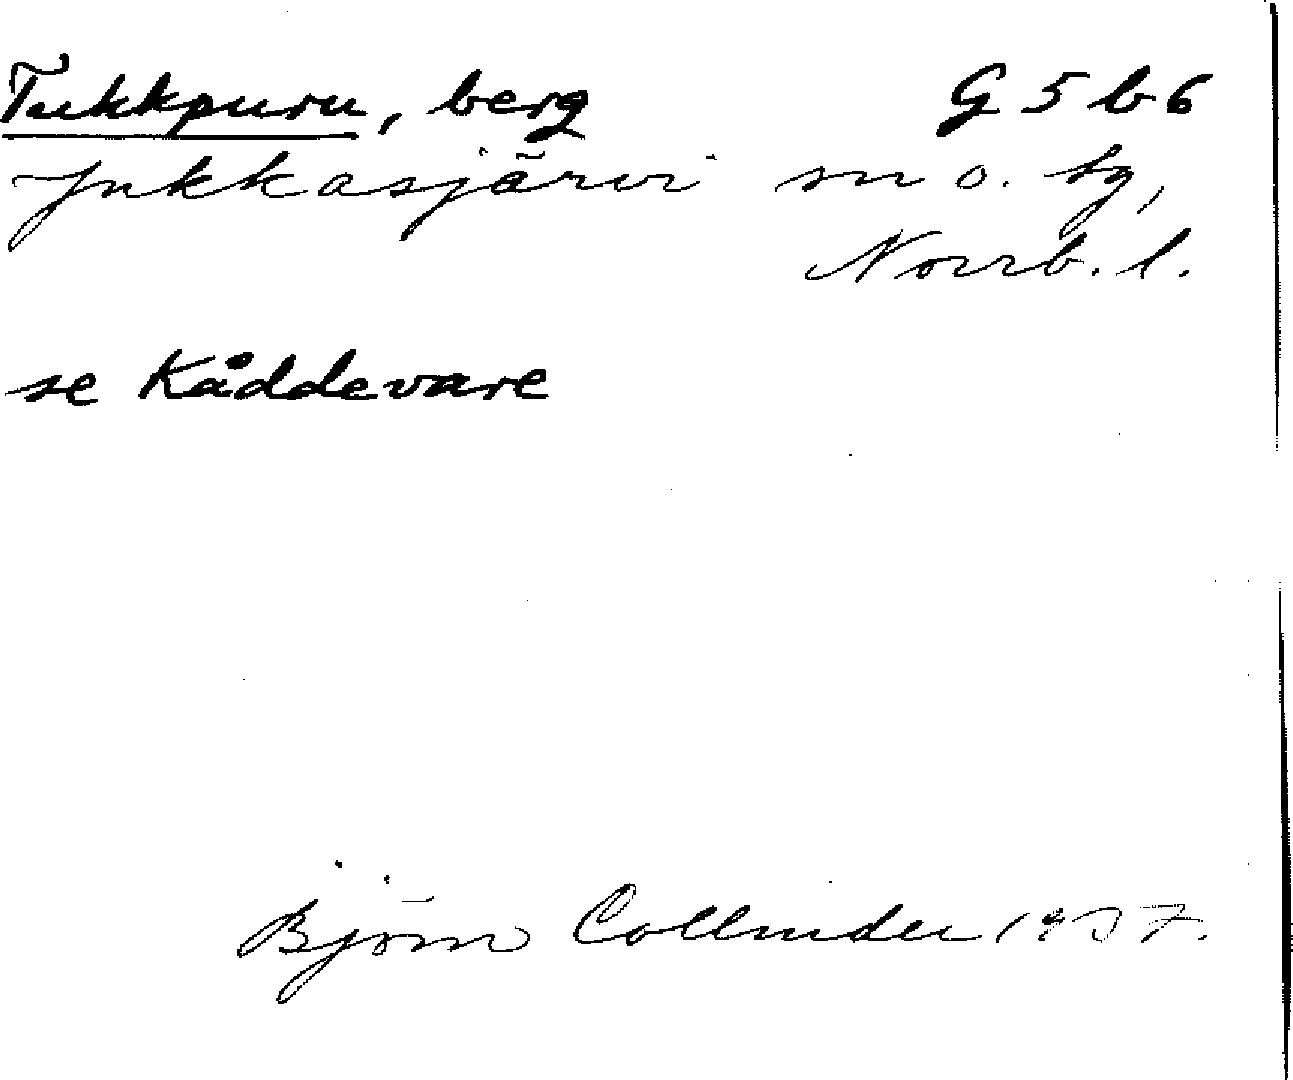 Tukkpuru, berg G 5 b 6
Jukkasjärvi sn o. tg,
Norrb. l.
se Kåddevare
Björn Collinder 1957.